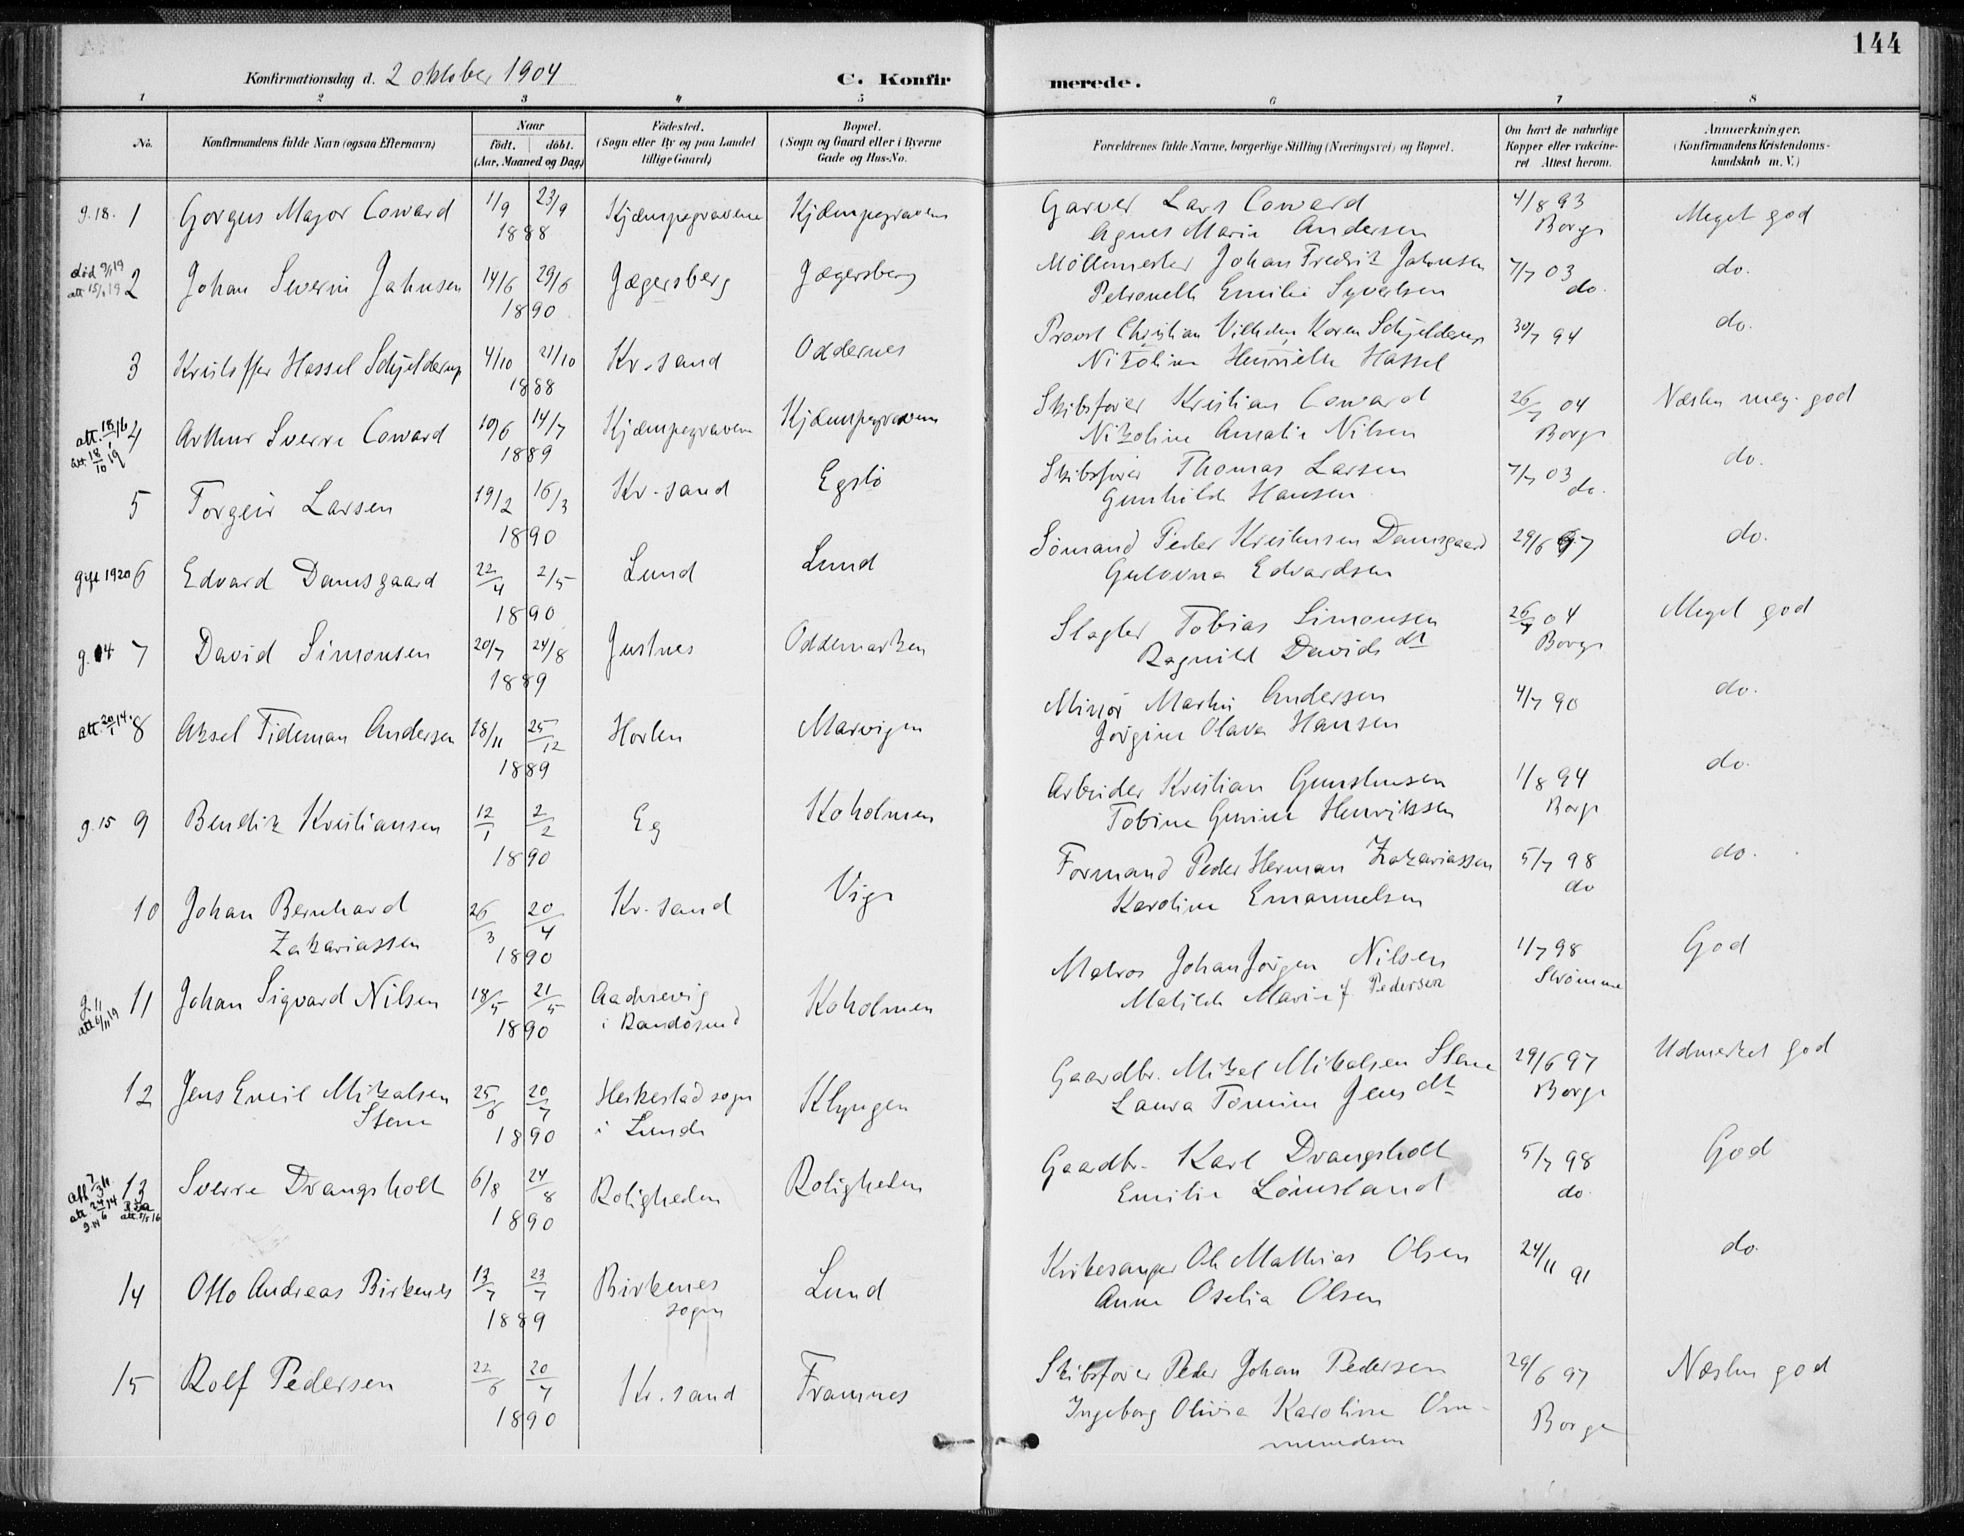 144
Konfirmationsdag d. 2 oktober 1904 C. Konfirmerede.
1 2 3 4 5 6 7 8
No. Konfirmandens fulde Navn (ogsaa Efternavn) Naar födt. döbt. (Aar, Maaned og Dag) Födested. (Sogn eller By og paa Landet tillige Gaard) Bopæl. (Sogn og Gaard eller i Byerne Gade og Hus-No. Forældrenes fulde Navne, borgerlige Stilling (Næringsvei) og Bopæl. Om havt de naturlige Kopper eller vakcineret Attest herom. Anmærkninger. (Konfirmandens Kristendomskundskab m. V.)
g. 18. 1 Gorgus Major Coward 11/9 23/9 Kjæmpegravene Kjæmpegraven Garver Lars Coward 4/8 93 Meget god
1888 Agnes Marie Andersen Borge
död 9/1 19 att 15/1 19 2 Johan Severin Jahnsen 14/6 29/6 Jægersberg Jægersberg Möllemester Johan Fredrik Jahnsen 7/7 03 do.
1890 Petronelle Emilie Syvertsen do.
3 Kristoffer Hassel Schjelderup 4/10 21/10 Kr.sand Oddernes Provst Christian Vilhelm Koren Schjelderup 30/7 94 do.
1888 Nikoline Henriette Hassel
att. 18/1 16 att 18/10 19 4 Arthur Sverre Coward 10/6 14/7 Kjæmpegraven Kjæmpegraven Skibsförer Kristian Coward 26/7 04 Næsten meg. god
1889 Nikoline Amalie Nilsen Borge
5 Torgeir Larsen 19/2 16/3 Kr.sand Egslö Skibsförer Thomas Larsen 7/7 03 do.
1890 Gunhild Hansen do.
gift 1920 6 Edvard Damsgaard 22/4 2/5 Lund Lund Sömand Peder Kristensen Damsgaard 29/6 97 do.
1890 Gulovna Edvardsen
g. 14 7 David Simonsen 20/7 24/8 Justnes Oddemarken Slagter Tobias Simonsen 26/7 04 Meget god
1889 Ragnild Davids dt Borge
att. 20/1 14. 8 Aksel Tideman Andersen 18/11 25/12 Hovlen Marvigen Minör Martin Andersen 4/7 90 do.
1889 Jörgine Olava Hansen
g. 15 9 Bendik Kristiansen 12/1 2/2 Eg Koholmen Arbeider Kristian Gunstensen 1/8 94 do.
1890 Tobine Gurine Henriksen Borge
10 Johan Bernhard Zakariassen 26/3 20/4 Kr.sand Vige Formand Peder Herman Zakariassen 5/7 98 do.
1890 Karoline Emanuelsen do
g. 11 att 6/11 19 11 Johan Sigvard Nilsen 18/5 21/5 Aadnevig i Randösund Koholmen Matros Johan Jörgen Nilsen 1/7 98 God
1890 Matilde Marie f. Pedersen Strömme
12 Jens Emil Mikalsen Stene 25/6 20/7 Heskestad sogn i Lunde Klyngen Gaardbr. Mikal Mikalsen Stene 29/6 97 Udmerket god
1890 Laura Tomine Jens dt Borge
13 Sverre Drangsholt 6/8 24/8 Roligheden Roligheden Gaardbr. Karl Drangsholt 5/7 98 God
1890 Emilie Lömsland do.
14 Otto Andreas Birkenes 13/7 23/7 Birkenes sogn Lund Kirkesanger Ole Mathias Olsen 24/11 91 do.
1889 Anne Oselia Olsen
15 Rolf Pedersen 22/6 20/7 Kr.sand Framnes Skibsförer Peder Johan Pedersen 29/6 97 Næsten god
1890 Ingeborg Olivia Karoline Om- Borge
mundsen